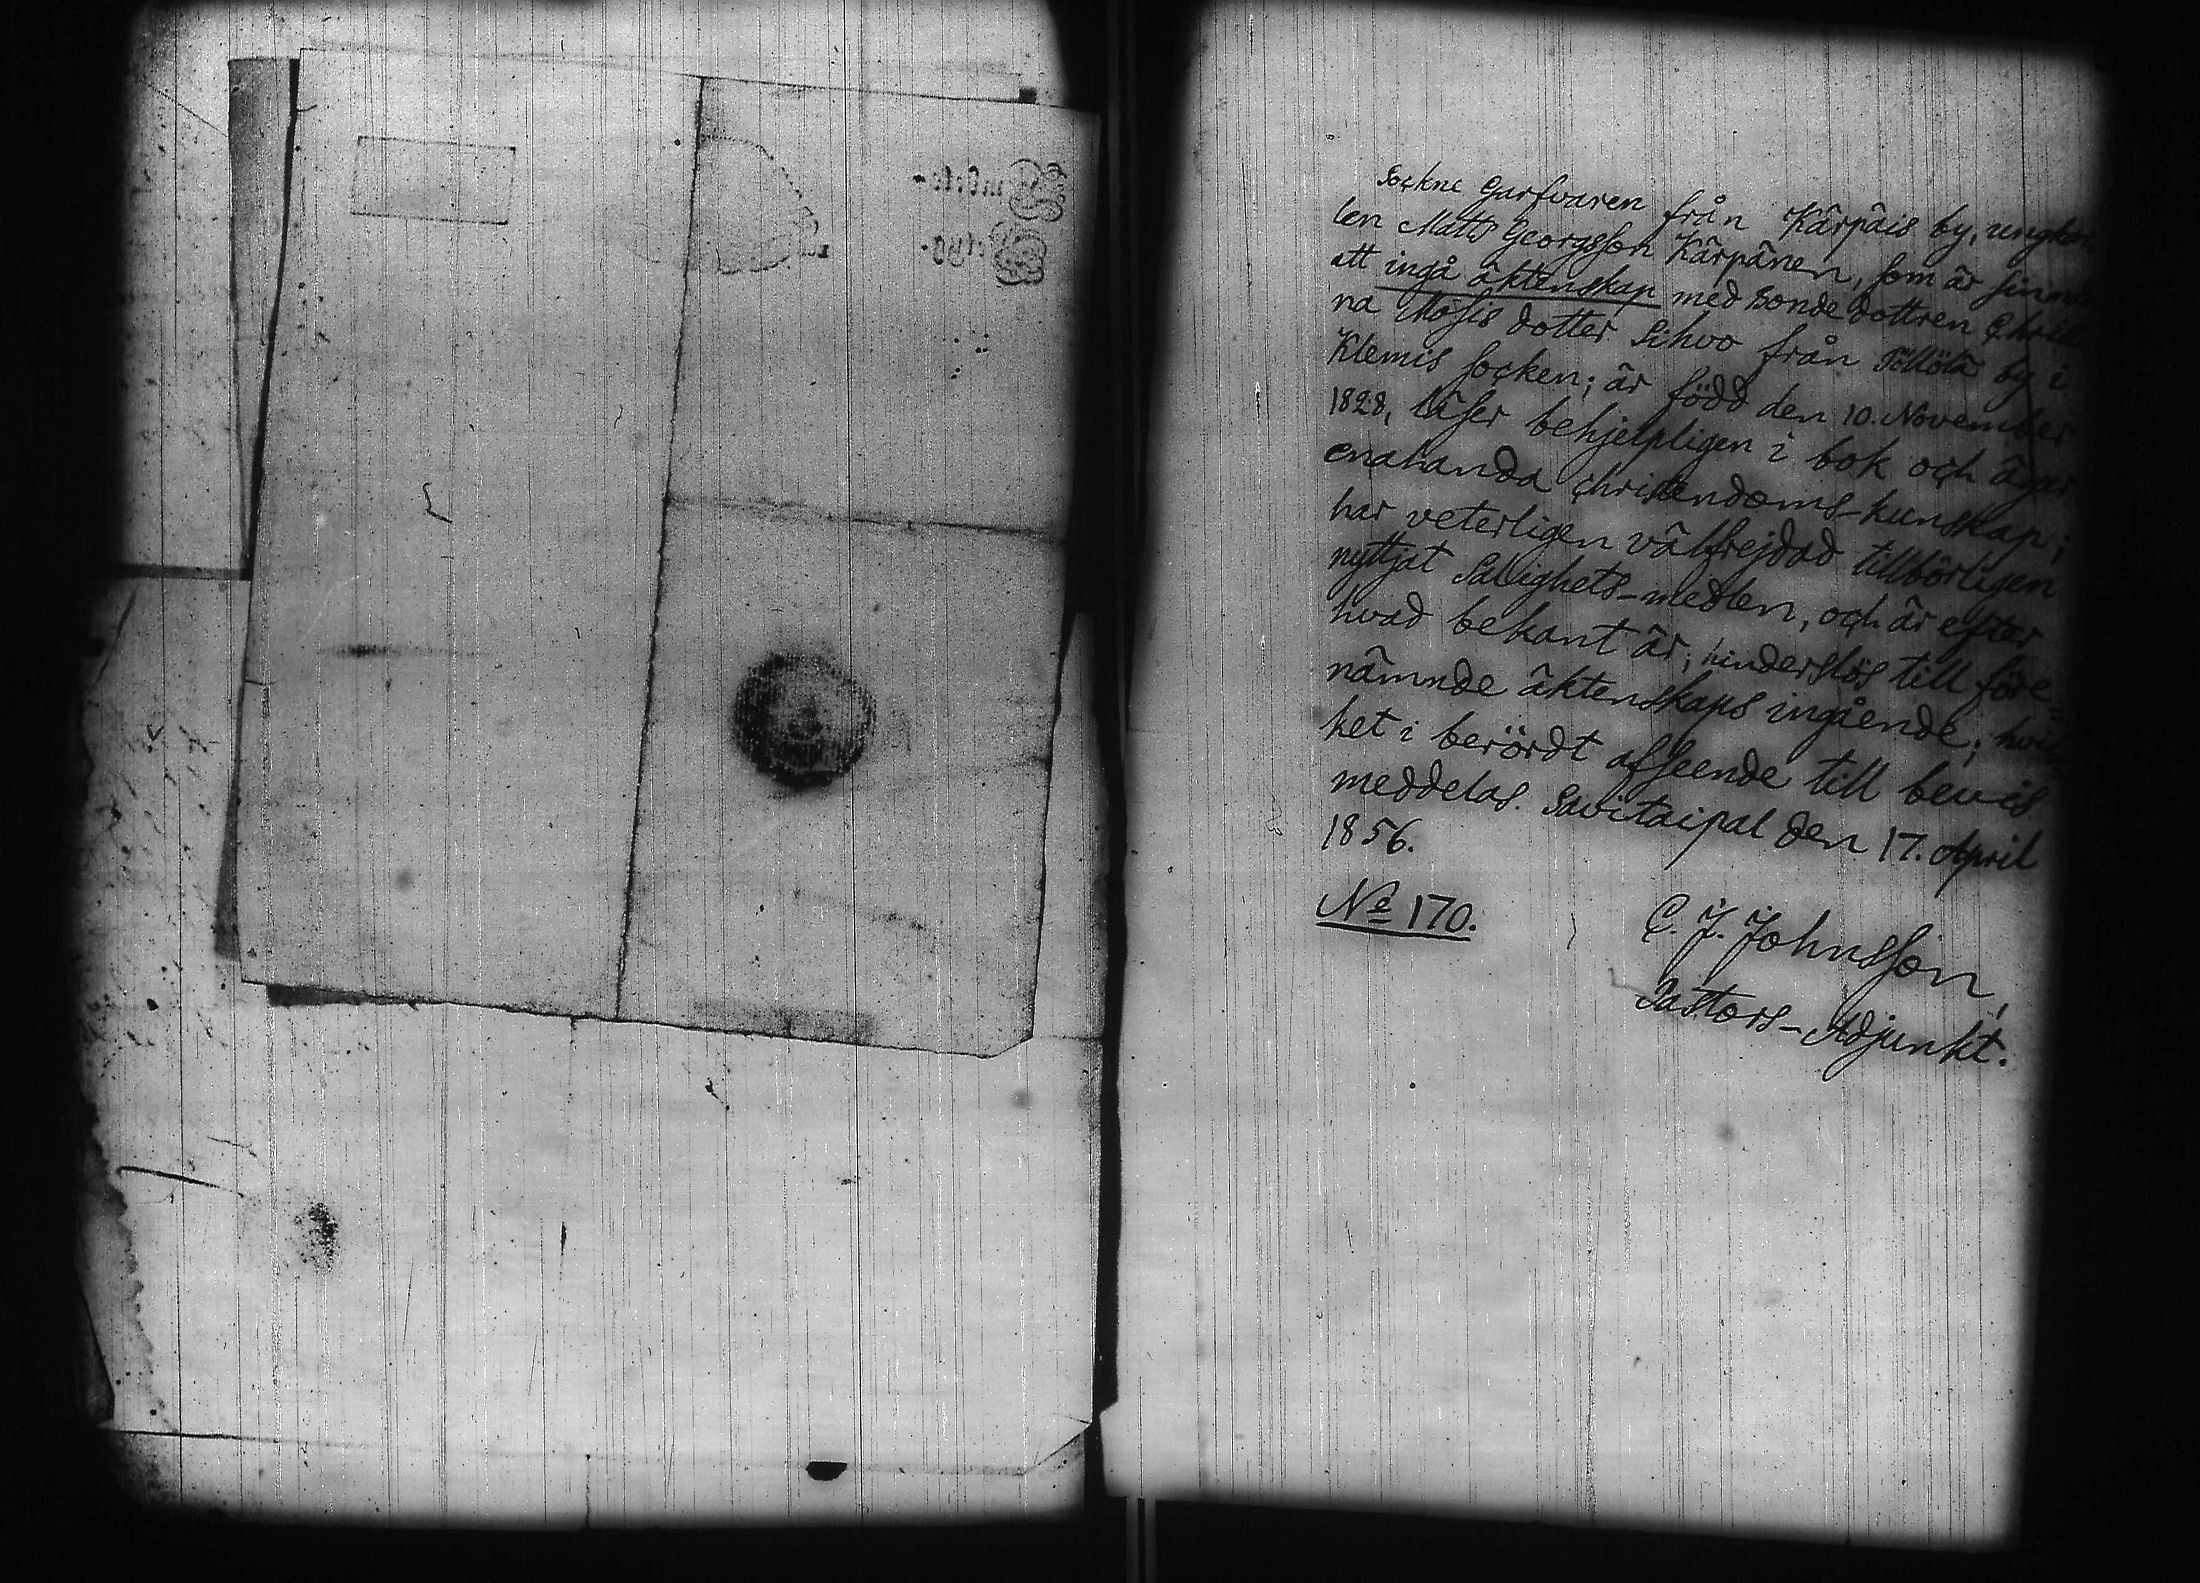 Sockne Garfvaren från Kärpäis by, ungkar
len Matts Georgsson Kärpänen, som är sinna
att ingå äktenskap med Bondedottren Chris
na Mosis dotter Sihvo från Pöllölä by i
Klemis socken; är född den 10. November
1828, läser behjelpligen i bok och äger
enahanda christendoms-kunskap;
har veterligen välfrejdad tillbörligen
nyttjat Salighets-medlen, och är efter
hvad bekant är, hinderslös till före=
nämnde äktenskaps ingående; hvil
ket i berördt afseende till bevis
meddelas. Savitaipal den 17. April
1856.
No 170.
C. J. Johnsson,
Pastors-Adjunkt.